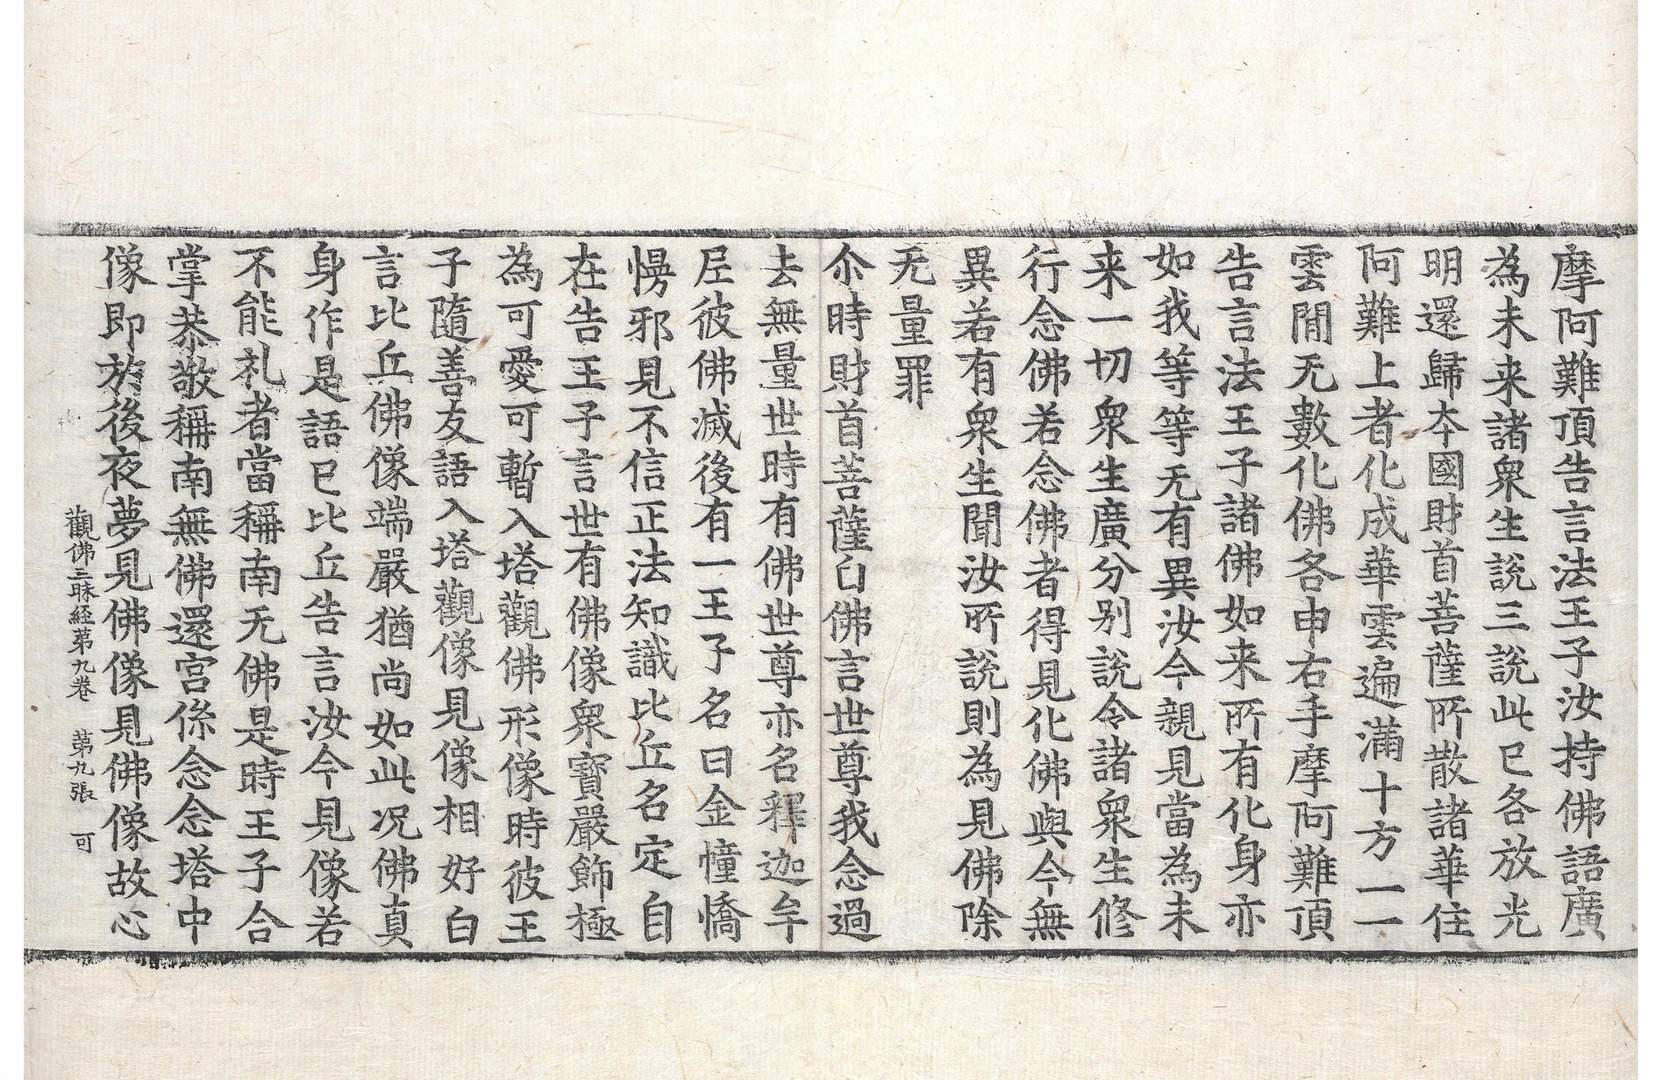 摩阿難頂告言法王子汝持佛語廣
為未来諸衆生說三說此已各放光
明還歸本國財首菩薩所散諸華住
阿難上者化成華雲遍滿十方一一
雲閒无數化佛各申右手摩阿難頂
告言法王子諸佛如来所有化身亦
如我等等无有異汝今親見當為未
来一切衆生廣分别說令諸衆生修
行念佛若念佛者得見化佛與今無
異若有衆生聞汝所說則為見佛除
无量罪
尒時財首菩薩白佛言世尊我念過
去無量世時有佛世尊亦名釋迦牟
尼彼佛滅後有一王子名曰金幢憍
慢邪見不信正法知識比丘名定自
在告王子言世有佛像衆寶嚴飾極
為可愛可暫入塔觀佛形像時彼王
子隨善友語入塔觀像見像相好白
言比丘佛像端嚴猶尚如此况佛真
身作是語已比丘告言汝今見像若
不能礼者當稱南无佛是時王子合
掌恭敬稱南無佛還宫係念念塔中
像即於後夜夢見佛像見佛像故心
觀佛三昧経第九卷 第九張 可